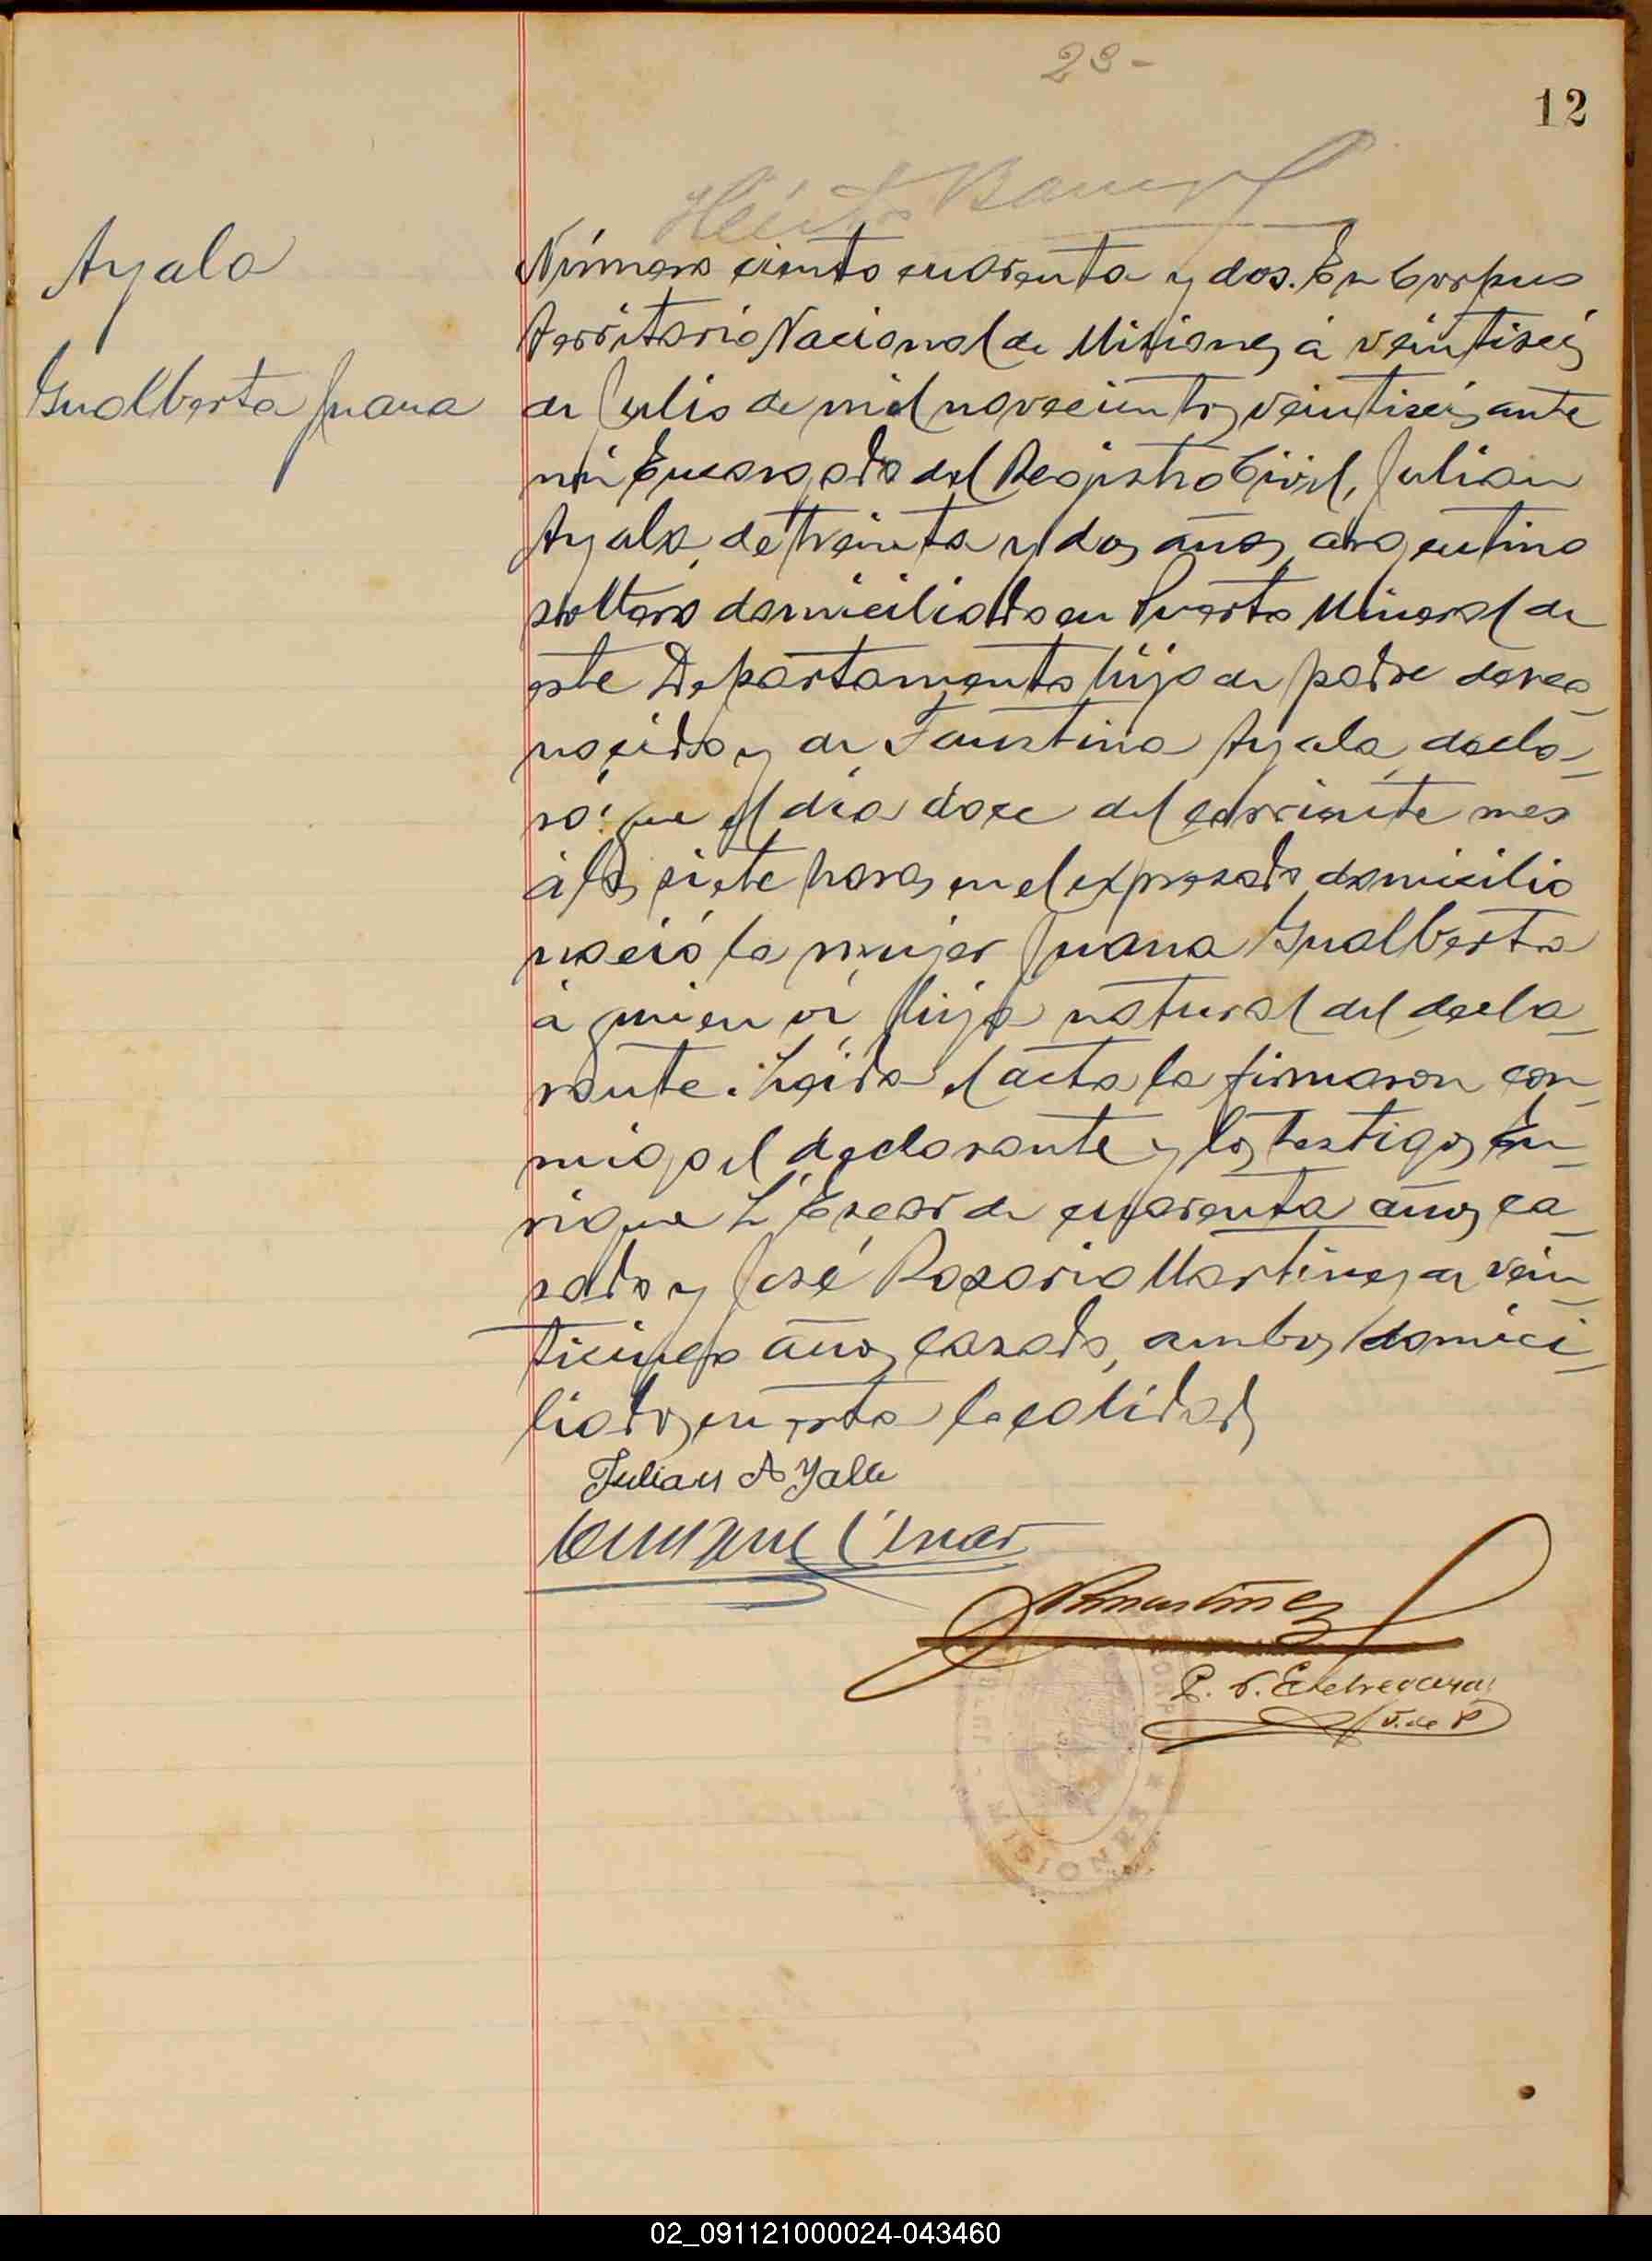 23-
12
Ayala
Gualberta Juana
Número ciento cuarenta y dos. En Corpus
Territorio Nacional de Misiones á veintiseis
de Julio de mil novecientos veintiseis, ante
mi Encargado del Registro Civil, Julian
Ayala, de treinta y dos años, argentino
soltero domiciliado en Puerto Mineral de
este Departamento hijo de padre desco_
nocido y de Faustina Ayala, decla_
ró: que el dia doce del corriente mes
á las siete horas, en el expresado domicilio
nació la mujer Juana Gualberta
á quien vi, hija natural del decla_
rante. Leida el acta la firmaron con_
migo el declarante y los testigos En_
rique L. Escar de cuarenta años, ca_
sado y José Rosario Martinez de vein_
ticinco años, casado, ambos domici_
liados en esta localidad
Julian AYala
Enrique Escar
RMartinez
P. V. Etchegaray
J. de P
MISIONES
02_091121000024-043460